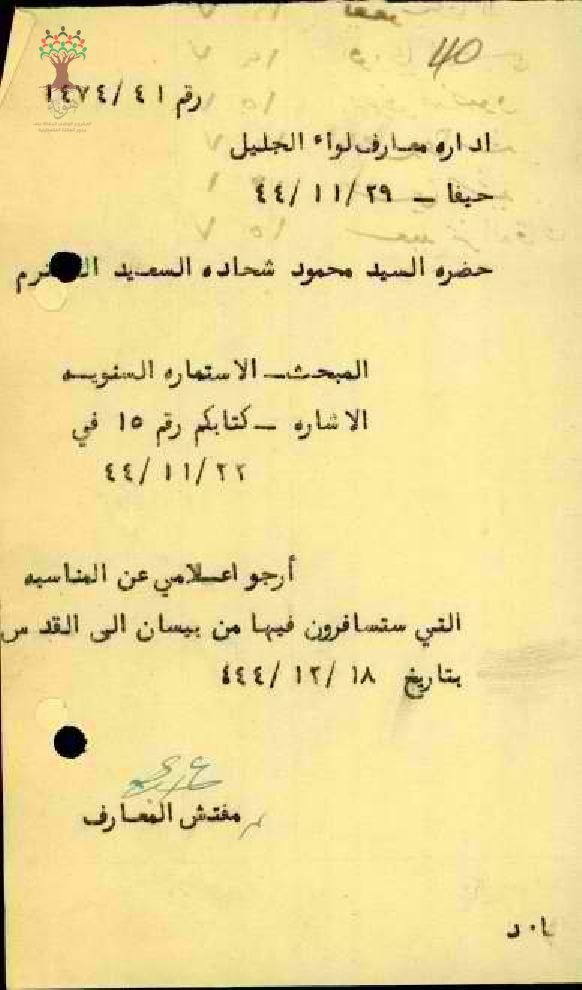 40
رقم ١٤٧٤/٤١
اداره معارف لواء الجليل
حيفا – ٤٤/١١/٢٩
حضره السيد محمود شحاده السعيد
المبحث – الاستماره السنويه
الاشاره – كتابكم رقم ١٥ في
٤٤/١١/٢٢
أرجو اعلامي عن المناسبه
التي ستسافرون فيها من بيسان الى القدس
بتاريخ ٤٤٤/١٢/١٨
مفتش المعارف